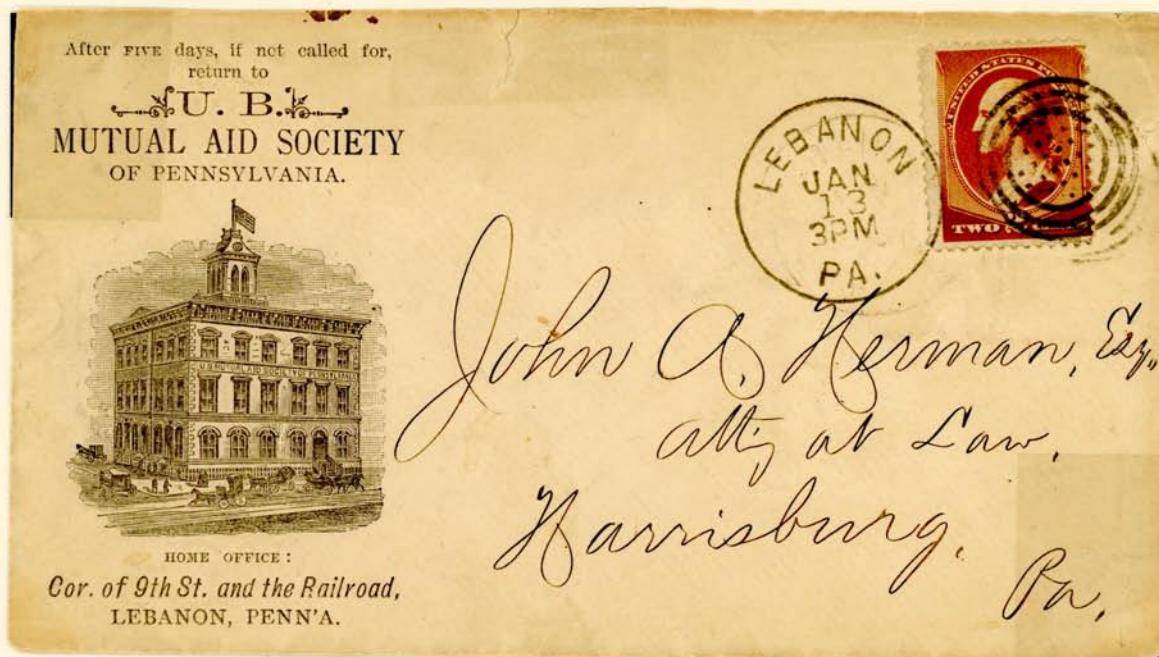 After FIVE days, if not called for,
return to
U. B.
MUTUAL AID SOCIETY
OF PENNSYLVANIA.
U.B. MUTUAL AID SOCIETY OF PENN'A
HOME OFFICE:
Cor. of 9th St. and the Railroad,
LEBANON, PENN'A.
LEBANON
JAN
13
3PM
PA.
UNITED STATES
TWO
John A. Herman, Esq.,
Att'y at Law,
Harrisburg,
Pa.